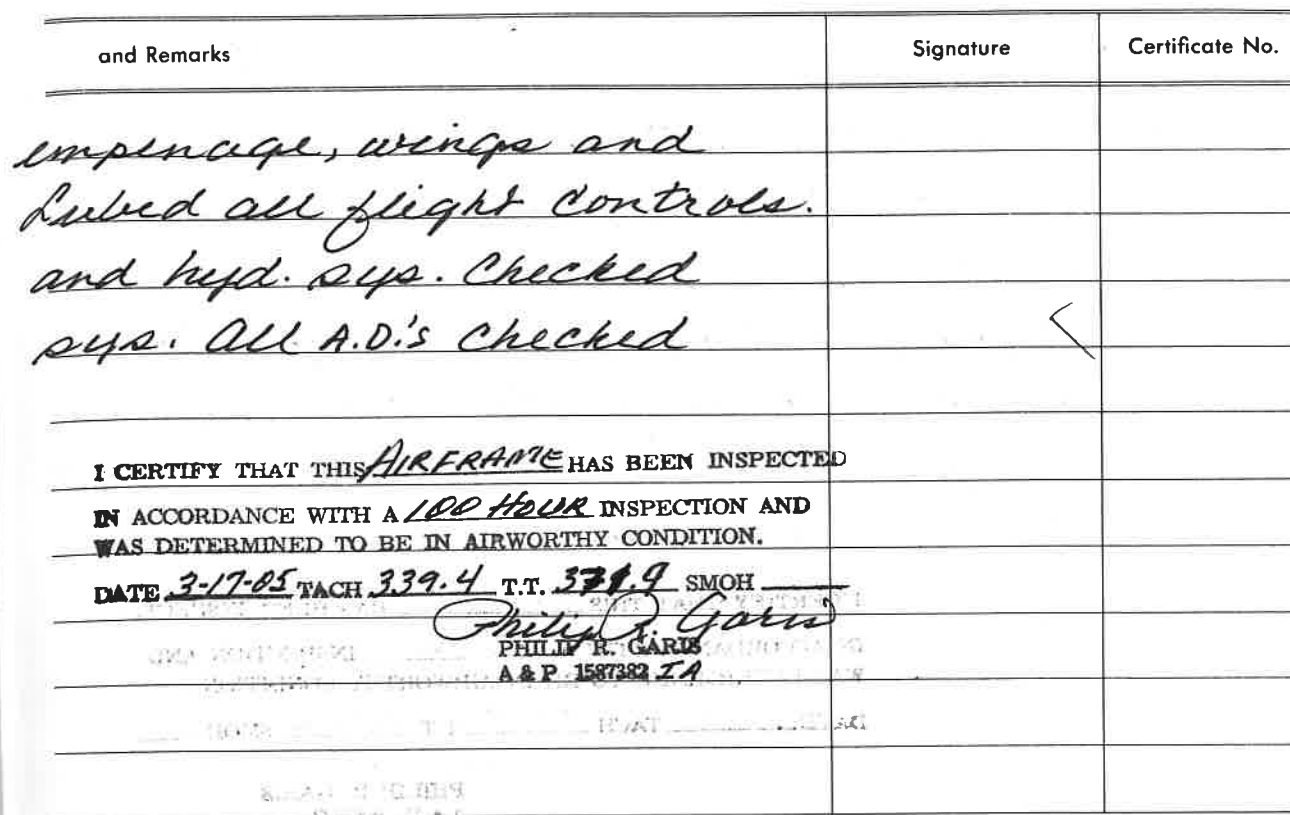 and Remarks Signature Certificate No.
empenage, wings and
Lubed all flight controls.
and hyd. sys. Checked
sys. All A.D.'s checked
I CERTIFY THAT THIS AIRFRAME HAS BEEN INSPECTED
IN ACCORDANCE WITH A 100 HOUR INSPECTION AND
WAS DETERMINED TO BE IN AIRWORTHY CONDITION.
DATE 3-17-05 TACH 339.4 T.T. SMOH
Philip R. Garis
PHILIP R. GARIS
A & P 1587382 IA